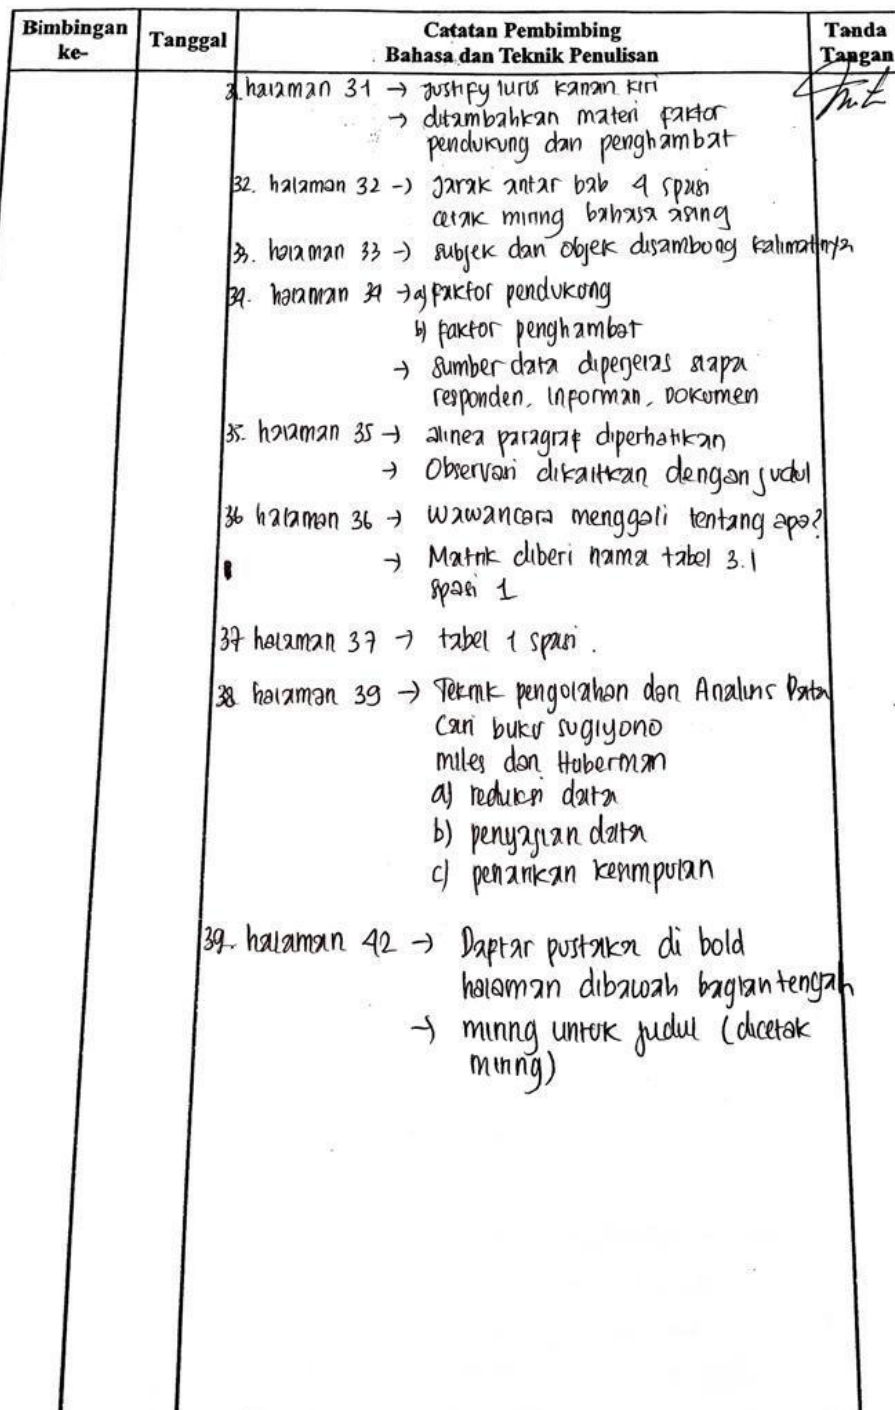 Bimbingan ke-
Tanggal
Catatan Pembimbing
Bahasa dan Teknik Penulisan
Tanda Tangan
31. halaman 31 → justify lurus kanan kiri
→ ditambahkan materi faktor
pendukung dan penghambat
32. halaman 32 → Jarak antar bab 4 spasi
cetak miring bahasa asing
33. halaman 33 → subjek dan objek disambong kalimatnya
34. halaman 34 → a) faktor pendukong
b) faktor penghambat
→ sumber data diperjelas siapa
responden, informan, Dokumen
35. halaman 35 → alinea paragraf diperhatikan
→ Observasi dikaitkan dengan judul
36 halaman 36 → Wawancara menggali tentang apa?
→ Matrik diberi nama tabel 3.1
spasi 1
37 halaman 37 → tabel 1 spasi.
38 halaman 39 → Teknik pengolahan dan Analisis Data
Cari buku sugiyono
miles dan Huberman
a) reduksi data
b) penyajian data
c) penarikan kesimpulan
39. halaman 42 → Daftar pustaka di bold
halaman dibawah bagian tengah
→ miring untuk judul (dicetak
miring)